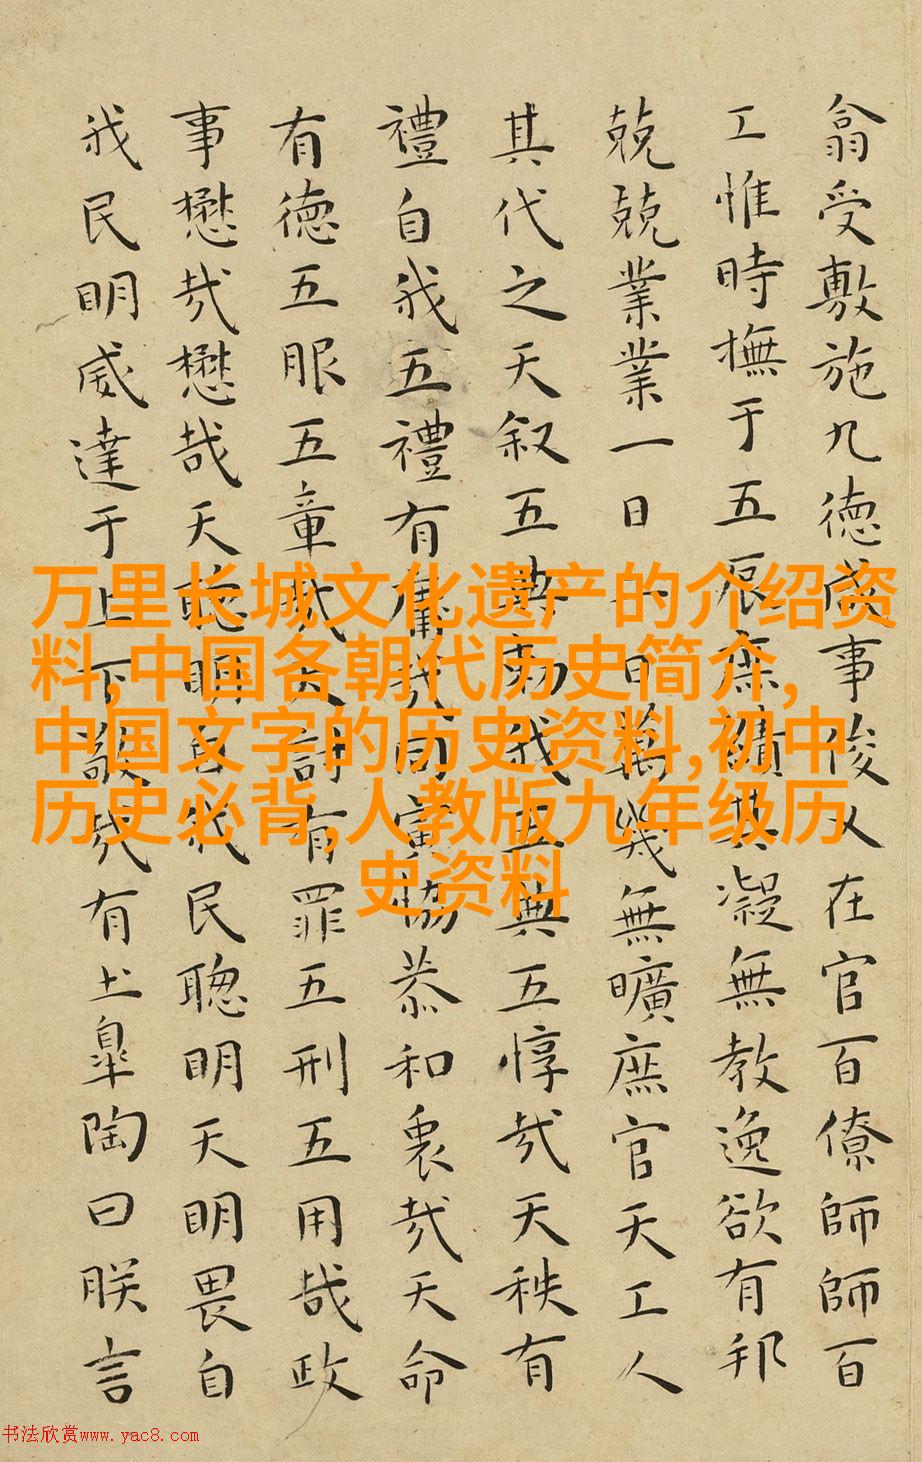 翕受敷施九德咸事俊乂在官百僚師師百
工惟時撫于五辰庶績其凝無教逸欲有邦
兢兢業業一日二日萬幾無曠庶官天工人
其代之天叙五典勑我五典五惇哉天秩有
禮自我五禮有庸哉同寅協恭和衷哉天命
有德五服五章哉天討有罪五刑五用哉政
事懋哉懋哉天聦明自我民聦明天明畏自
我民明威達于上下敬哉有土皐陶曰朕言
万里长城文化遗产的介绍资
料,中国各朝代历史简介,
中国文字的历史资料,初中
历史必背,人教版九年级历
史资料
书法欣赏www.yac8.com